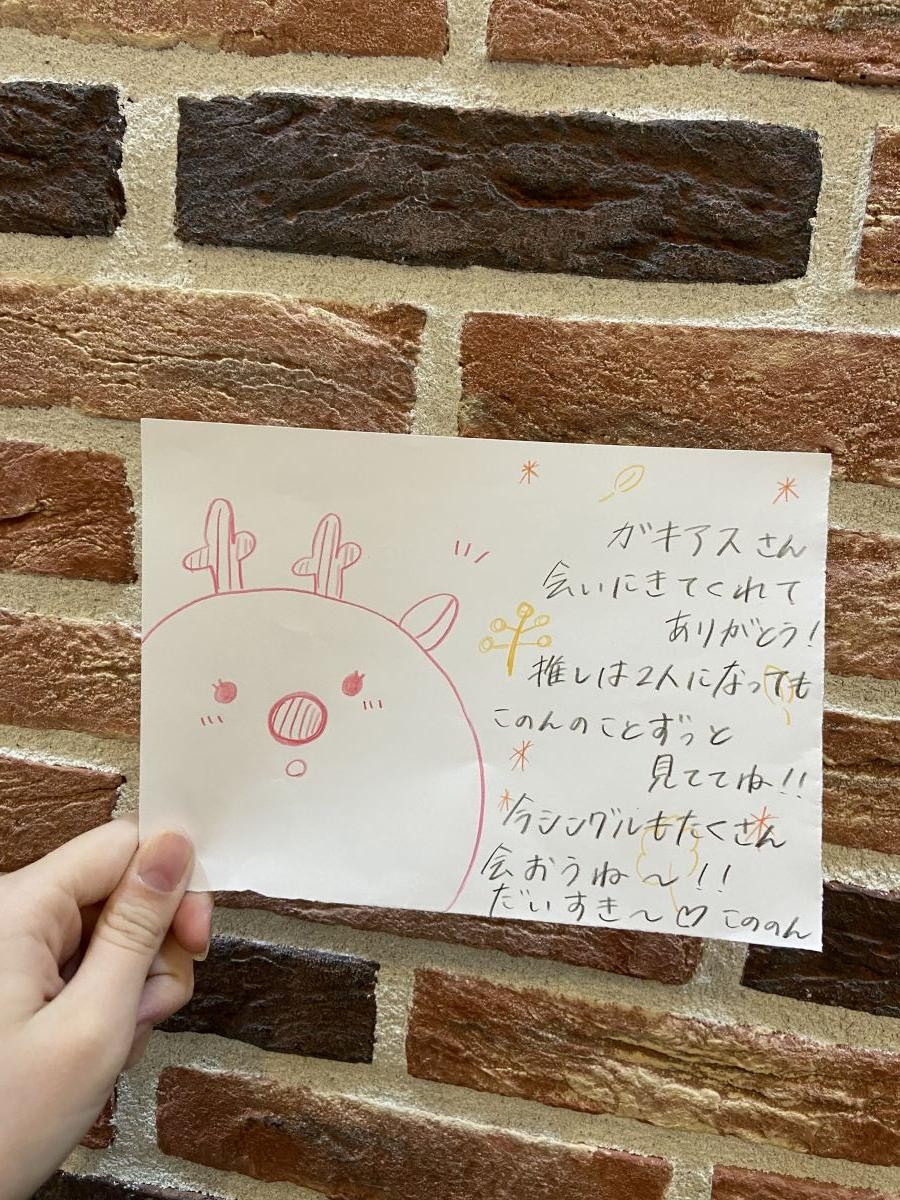 ガキアスさん
会いにきてくれて
ありがとう!
推しは2人になっても
このんのことずっと
見ててね!!
今シングルもたくさん
会おうね〜!!
だいすき〜♡ こののん